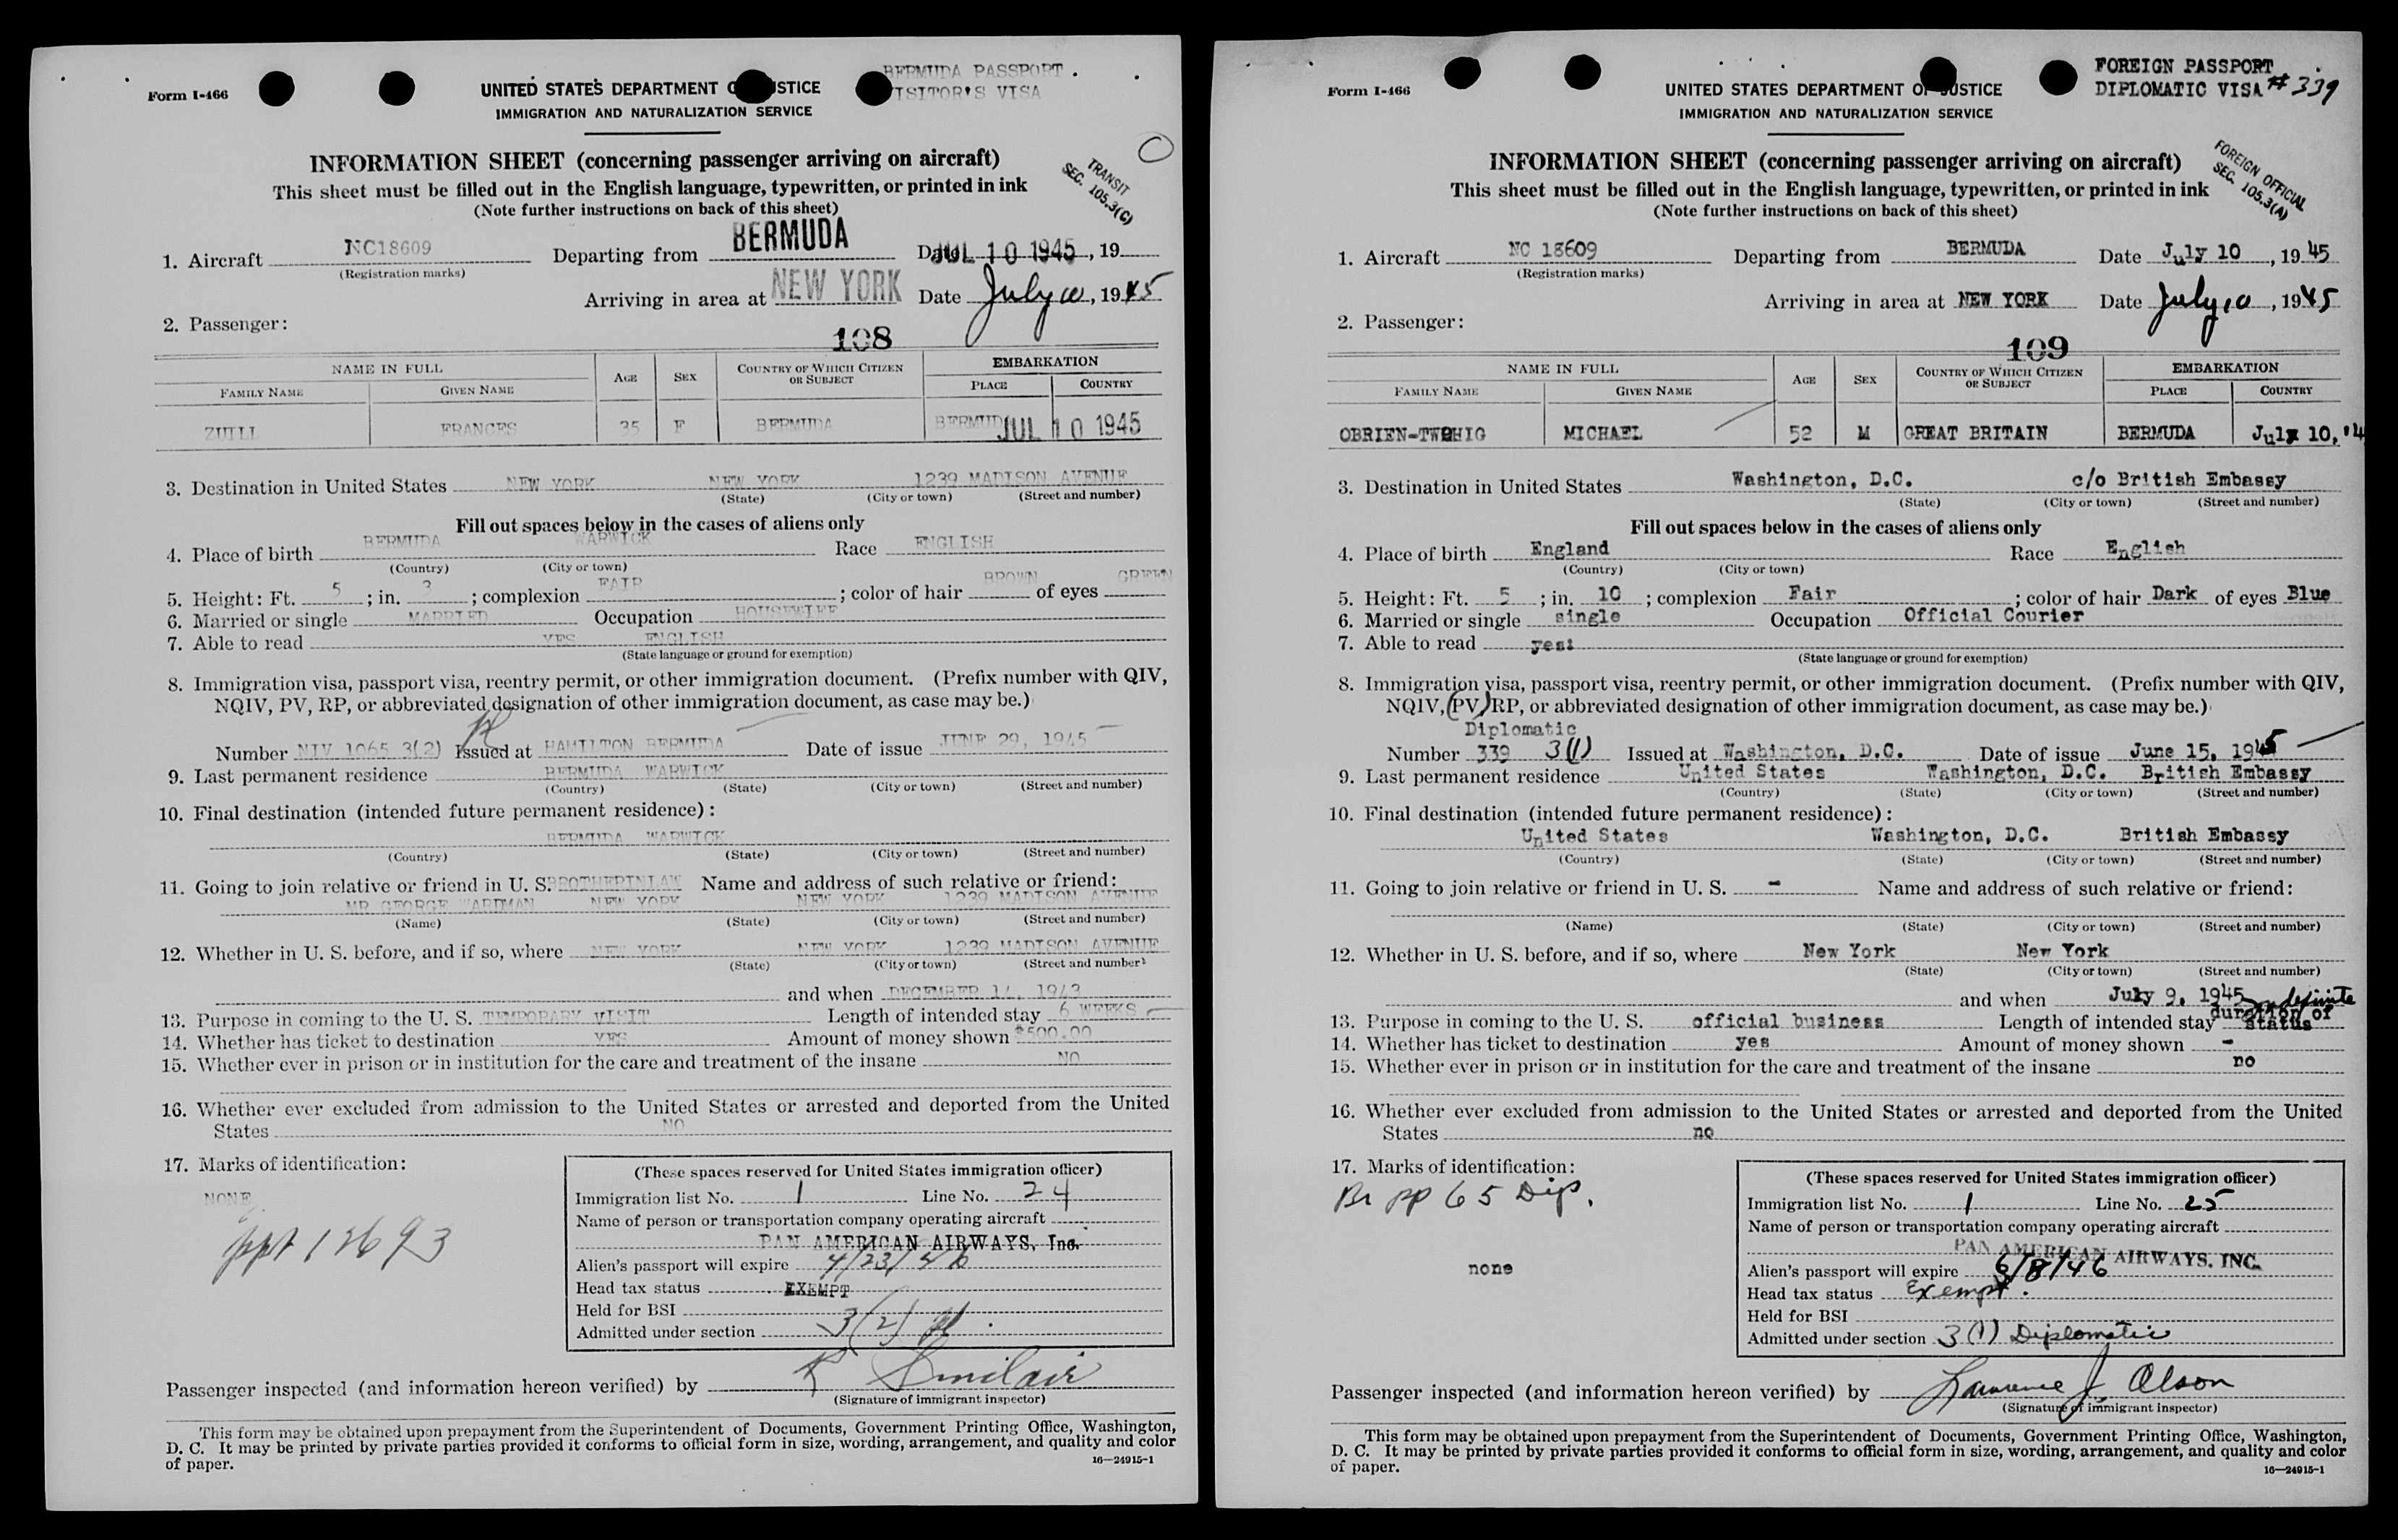 BERMUDA PASSPORT
Form I-466
UNITED STATES DEPARTMENT OF JUSTICE
VISITOR'S VISA
IMMIGRATION AND NATURALIZATION SERVICE
INFORMATION SHEET (concerning passenger arriving on aircraft)
TRANSIT
SEC. 105.3(C)
This sheet must be filled out in the English language, typewritten, or printed in ink
(Note further instructions on back of this sheet)
1. Aircraft NC18609 Departing from BERMUDA Date JUL 10 1945, 19
(Registration marks)
Arriving in area at NEW YORK Date July 10, 1945
2. Passenger:
108
NAME IN FULL AGE SEX COUNTRY OF WHICH CITIZEN OR SUBJECT EMBARKATION
FAMILY NAME GIVEN NAME PLACE COUNTRY
ZUILL FRANCES 35 F BERMUDA BERMUD JUL 10 1945
3. Destination in United States NEW YORK NEW YORK 1239 MADISON AVENUE
(State) (City or town) (Street and number)
Fill out spaces below in the cases of aliens only
4. Place of birth BERMUDA WARWICK Race ENGLISH
(Country) (City or town)
5. Height: Ft. 5; in. 3; complexion FAIR; color of hair BROWN of eyes GREEN
6. Married or single MARRIED Occupation HOUSEWIFE
7. Able to read YES ENGLISH
(State language or ground for exemption)
8. Immigration visa, passport visa, reentry permit, or other immigration document. (Prefix number with QIV,
NQIV, PV, RP, or abbreviated designation of other immigration document, as case may be.)
Number NIV 1065 3(2) Issued at HAMILTON BERMUDA Date of issue JUNE 29, 1945
9. Last permanent residence BERMUDA WARWICK
(Country) (State) (City or town) (Street and number)
10. Final destination (intended future permanent residence):
BERMUDA WARWICK
(Country) (State) (City or town) (Street and number)
11. Going to join relative or friend in U. S. BROTHERINLAW Name and address of such relative or friend:
MR GEORGE WARDMAN NEW YORK NEW YORK 1239 MADISON AVENUE
(Name) (State) (City or town) (Street and number)
12. Whether in U. S. before, and if so, where NEW YORK NEW YORK 1239 MADISON AVENUE
(State) (City or town) (Street and number)
and when DECEMBER 14, 1943
13. Purpose in coming to the U. S. TEMPORARY VISIT Length of intended stay 6 WEEKS
14. Whether has ticket to destination YES Amount of money shown $500.00
15. Whether ever in prison or in institution for the care and treatment of the insane NO
16. Whether ever excluded from admission to the United States or arrested and deported from the United
States NO
17. Marks of identification:
NONE
ppt 12693
(These spaces reserved for United States immigration officer)
Immigration list No. 1 Line No. 24
Name of person or transportation company operating aircraft
PAN AMERICAN AIRWAYS, Inc.
Alien's passport will expire 4/23/46
Head tax status EXEMPT
Held for BSI
Admitted under section 3(2)
Passenger inspected (and information hereon verified) by R Sinclair
(Signature of immigrant inspector)
This form may be obtained upon prepayment from the Superintendent of Documents, Government Printing Office, Washington,
D. C. It may be printed by private parties provided it conforms to official form in size, wording, arrangement, and quality and color
of paper.
16—24915-1
FOREIGN PASSPORT
Form I-466
UNITED STATES DEPARTMENT OF JUSTICE
DIPLOMATIC VISA # 339
IMMIGRATION AND NATURALIZATION SERVICE
INFORMATION SHEET (concerning passenger arriving on aircraft)
FOREIGN OFFICIAL
SEC. 105.3(A)
This sheet must be filled out in the English language, typewritten, or printed in ink
(Note further instructions on back of this sheet)
1. Aircraft NC 18609 Departing from BERMUDA Date July 10, 1945
(Registration marks)
Arriving in area at NEW YORK Date July 10, 1945
2. Passenger:
109
NAME IN FULL AGE SEX COUNTRY OF WHICH CITIZEN OR SUBJECT EMBARKATION
FAMILY NAME GIVEN NAME PLACE COUNTRY
OBRIEN-TWOHIG MICHAEL 52 M GREAT BRITAIN BERMUDA July 10, '4
3. Destination in United States Washington, D.C. c/o British Embassy
(State) (City or town) (Street and number)
Fill out spaces below in the cases of aliens only
4. Place of birth England Race English
(Country) (City or town)
5. Height: Ft. 5; in. 10; complexion Fair; color of hair Dark of eyes Blue
6. Married or single single Occupation Official Courier
7. Able to read yes
(State language or ground for exemption)
8. Immigration visa, passport visa, reentry permit, or other immigration document. (Prefix number with QIV,
NQIV, PV, RP, or abbreviated designation of other immigration document, as case may be.)
Diplomatic
Number 339 3(1) Issued at Washington, D.C. Date of issue June 15, 1945
9. Last permanent residence United States Washington, D.C. British Embassy
(Country) (State) (City or town) (Street and number)
10. Final destination (intended future permanent residence):
United States Washington, D.C. British Embassy
(Country) (State) (City or town) (Street and number)
11. Going to join relative or friend in U. S. - Name and address of such relative or friend:
(Name) (State) (City or town) (Street and number)
12. Whether in U. S. before, and if so, where New York New York
(State) (City or town) (Street and number)
and when July 9, 1945
indefinite
duration of
13. Purpose in coming to the U. S. official business Length of intended stay status
14. Whether has ticket to destination yes Amount of money shown -
15. Whether ever in prison or in institution for the care and treatment of the insane no
16. Whether ever excluded from admission to the United States or arrested and deported from the United
States no
17. Marks of identification:
Br pp 65 Dip.
none
(These spaces reserved for United States immigration officer)
Immigration list No. 1 Line No. 25
Name of person or transportation company operating aircraft
PAN AMERICAN AIRWAYS, INC.
Alien's passport will expire 6/8/46
Head tax status Exempt.
Held for BSI
Admitted under section 3(1) Diplomatic
Passenger inspected (and information hereon verified) by Lawrence J. Olson
(Signature of immigrant inspector)
This form may be obtained upon prepayment from the Superintendent of Documents, Government Printing Office, Washington,
D. C. It may be printed by private parties provided it conforms to official form in size, wording, arrangement, and quality and color
of paper.
16—24915-1